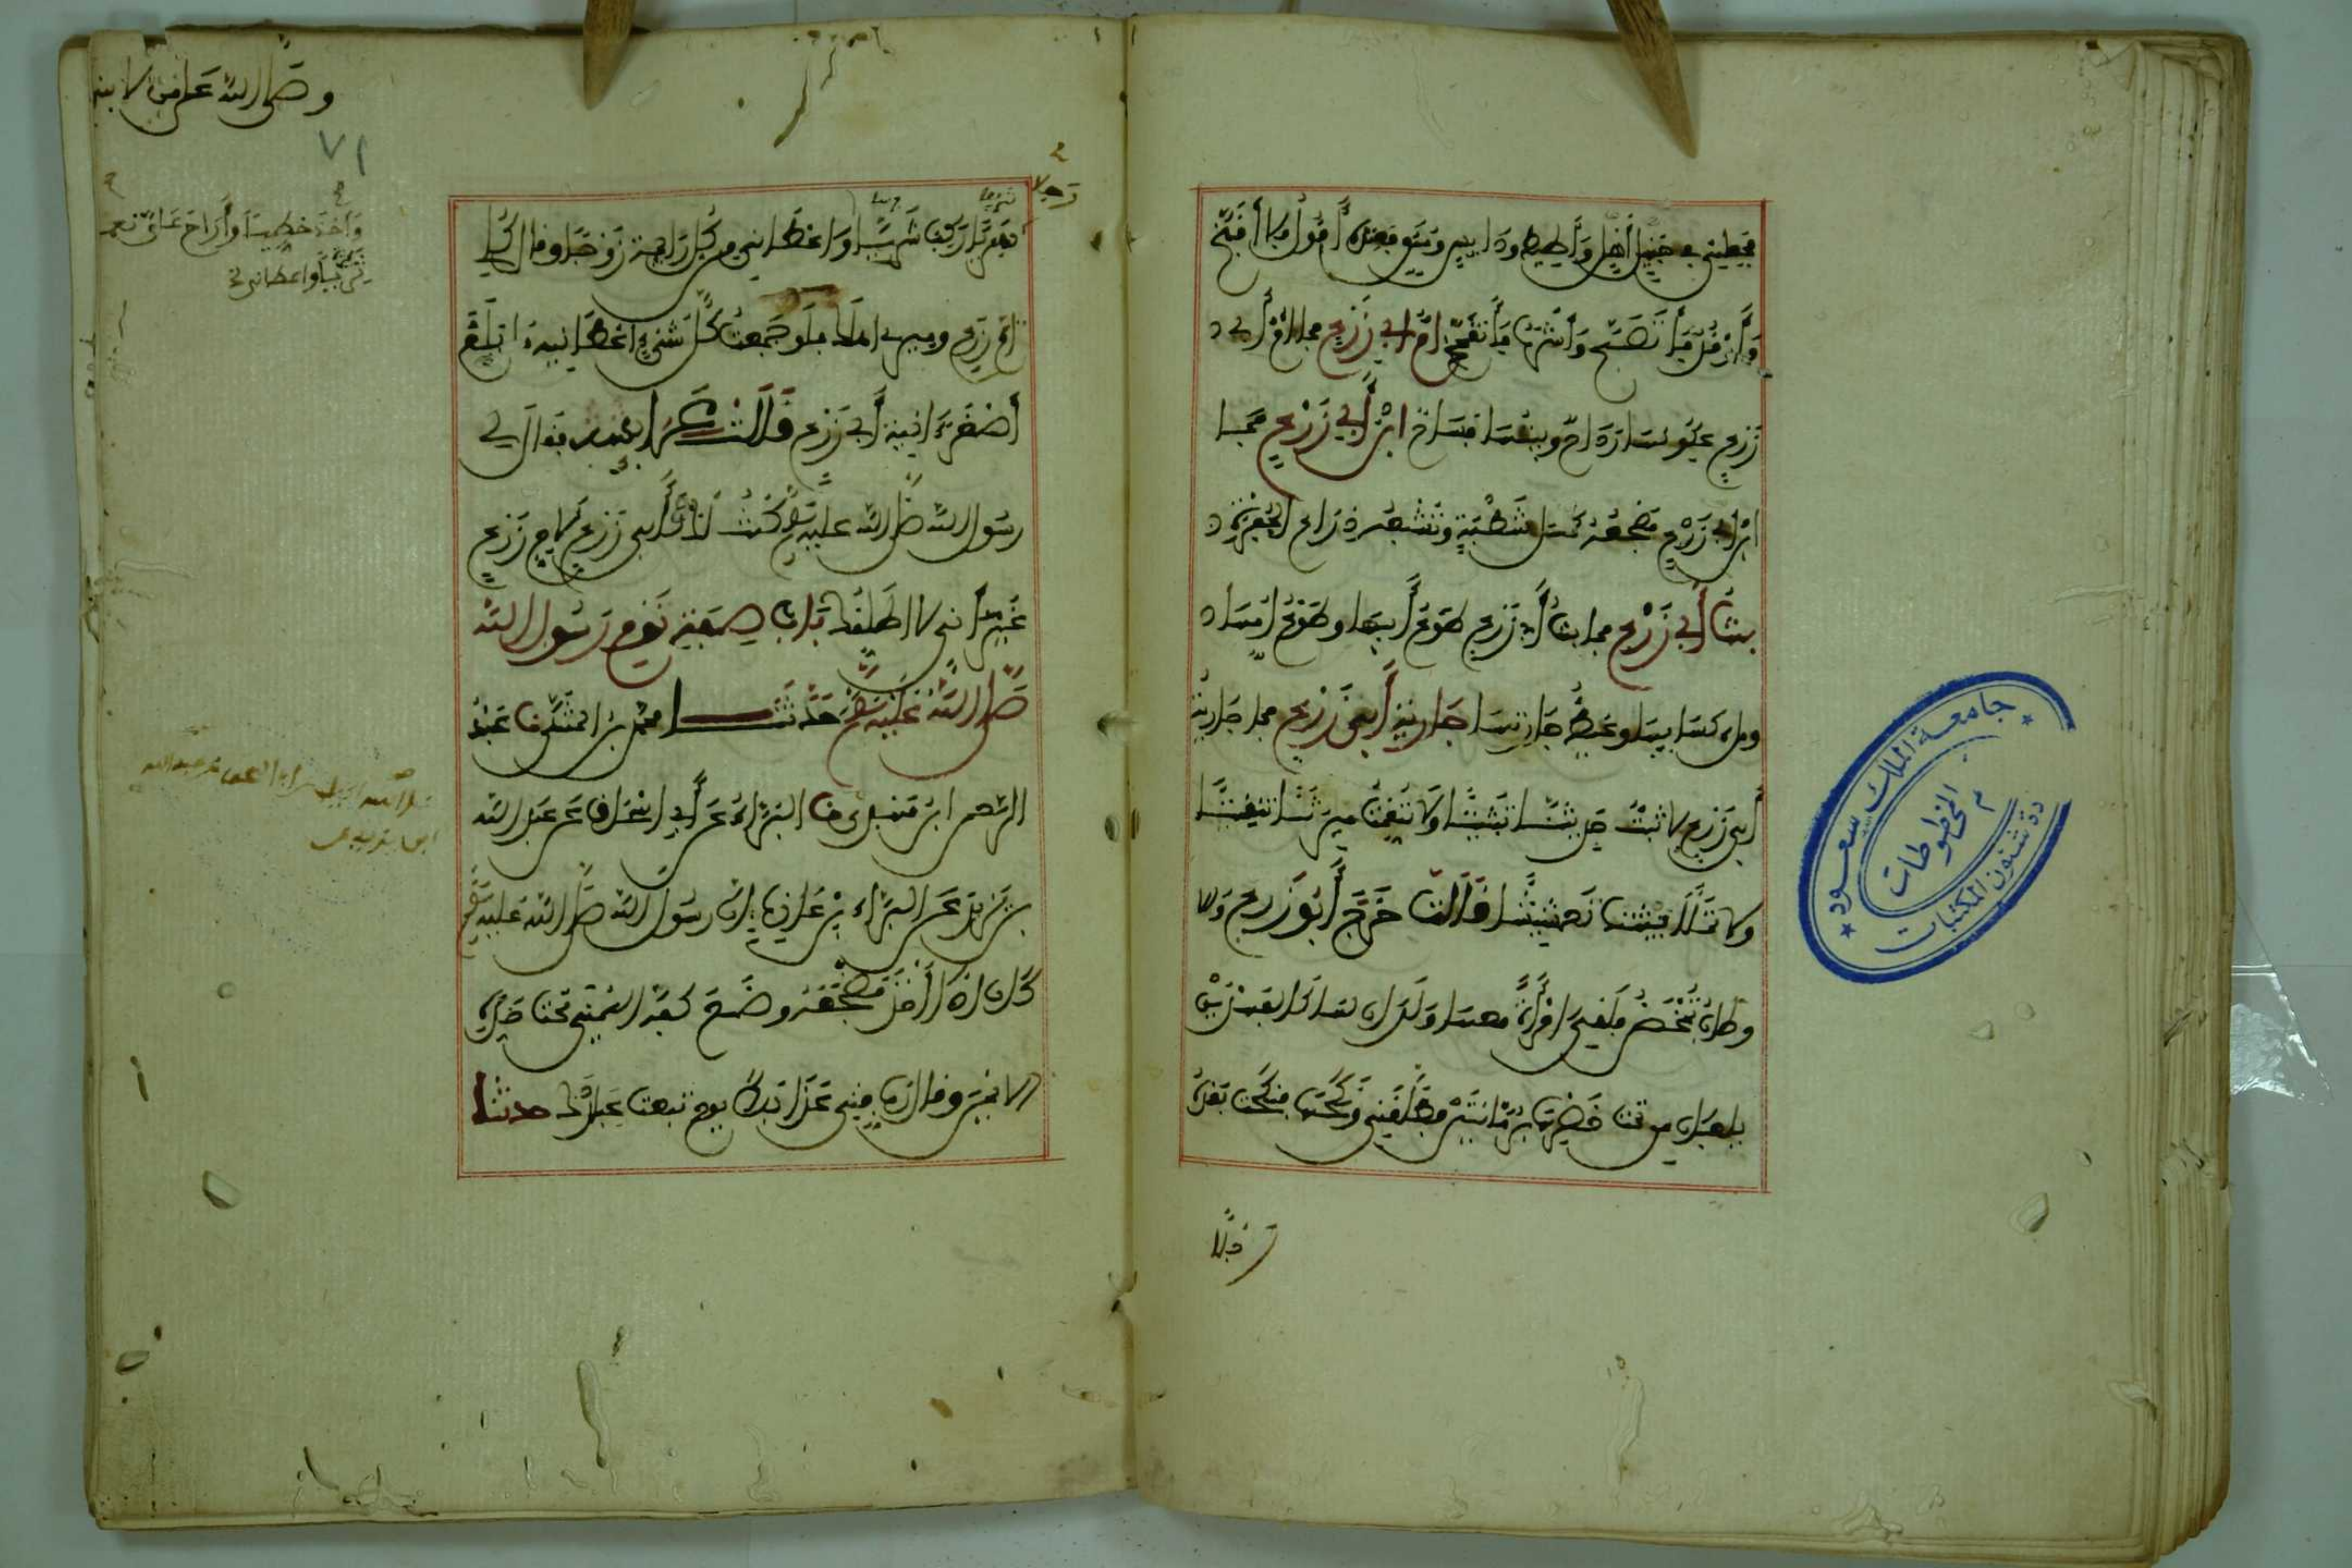 فجعلني في أهل صهيل وأطيط ودايس ومنق فعنده أقول فلا أقبح
وأرقد فأتصبح وأشرب فأتقمح أم أبي زرع فما أم أبي
زرع عكومها رداح وبيتها فساح ابن أبي زرع فما
ابن أبي زرع مضجعه كمسل شطبة وتشبعه ذراع الجفرة
بنت أبي زرع فما بنت أبي زرع طوع أبيها وطوع أمها
وملء كسائها وغيظ جارتها جارية أبي زرع فما جارية
أبي زرع لا تبث حديثنا تبثيثا ولا تنقث ميرتنا تنقيثا
ولا تملأ بيتنا تعشيشا قالت خرج أبو زرع والا
وطاب تمخض فلقي امرأة معها ولدان لها كالفهدين
يلعبان من تحت خصرها برمانتين فطلقني ونكحها فنكحت بعده
رجلا
وصلى الله على من لا نبي
٧١
رجلا
سريا
ركب شريا وأعطاني من كل رائحة زوجا وقال كلي
أم زرع وميري أهلك فلو جمعت كل شيء أعطانيه ما بلغ
أصغر آنية أبي زرع قالت عائشة فقال لي
رسول الله صلى الله عليه وسلم كنت لك كأبي زرع لأم زرع
غير أني لا أطلقك باب صفة نوم رسول الله
صلى الله عليه وسلم حدثنا محمد بن المثنى نا عبد
الرحمن ابن مهدي نا إسرائيل عن أبي إسحاق عن عبد الله
بن يزيد عن البراء بن عازب أن رسول الله صلى الله عليه وسلم
كان إذا أخذ مضجعه وضع كفه اليمنى تحت خده
الأيمن وقال رب قني عذابك يوم تبعث عبادك حدثنا
وأخذ خطيا وأراح علي نعما
ثريا وأعطاني
ابن يزيد
جامعة الملك سعود
قسم المخطوطات
عمادة شئون المكتبات